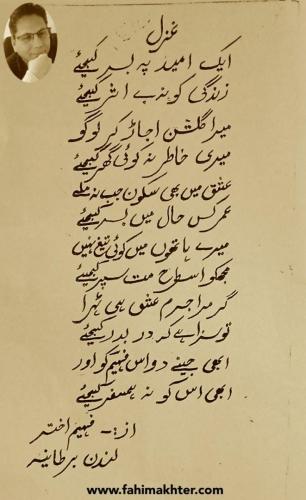 غزل
ایک امید پہ بسر کیجئے
زندگی کو نہ بے اثر کیجئے
میرا گلشن اجاڑ کر لوگو
میری خاطر نہ کوئی گھر کیجئے
عشق میں بھی سکون جب نہ ملے
عمر کس حال میں بسر کیجئے
میرے ہاتھوں میں کوئی تیغ نہیں
مجھکو اسطرح مت سپر کیجئے
گر مرا جرم عشق ہی ٹہرا
تو سزا ہے کہ در بدر کیجئے
ابھی جینے دو اس فہیم کو اور
ابھی اس کو نہ ہمسفر کیجئے
از:۔ فہیم اختر
لندن برطانیہ
www.fahimakhter.com